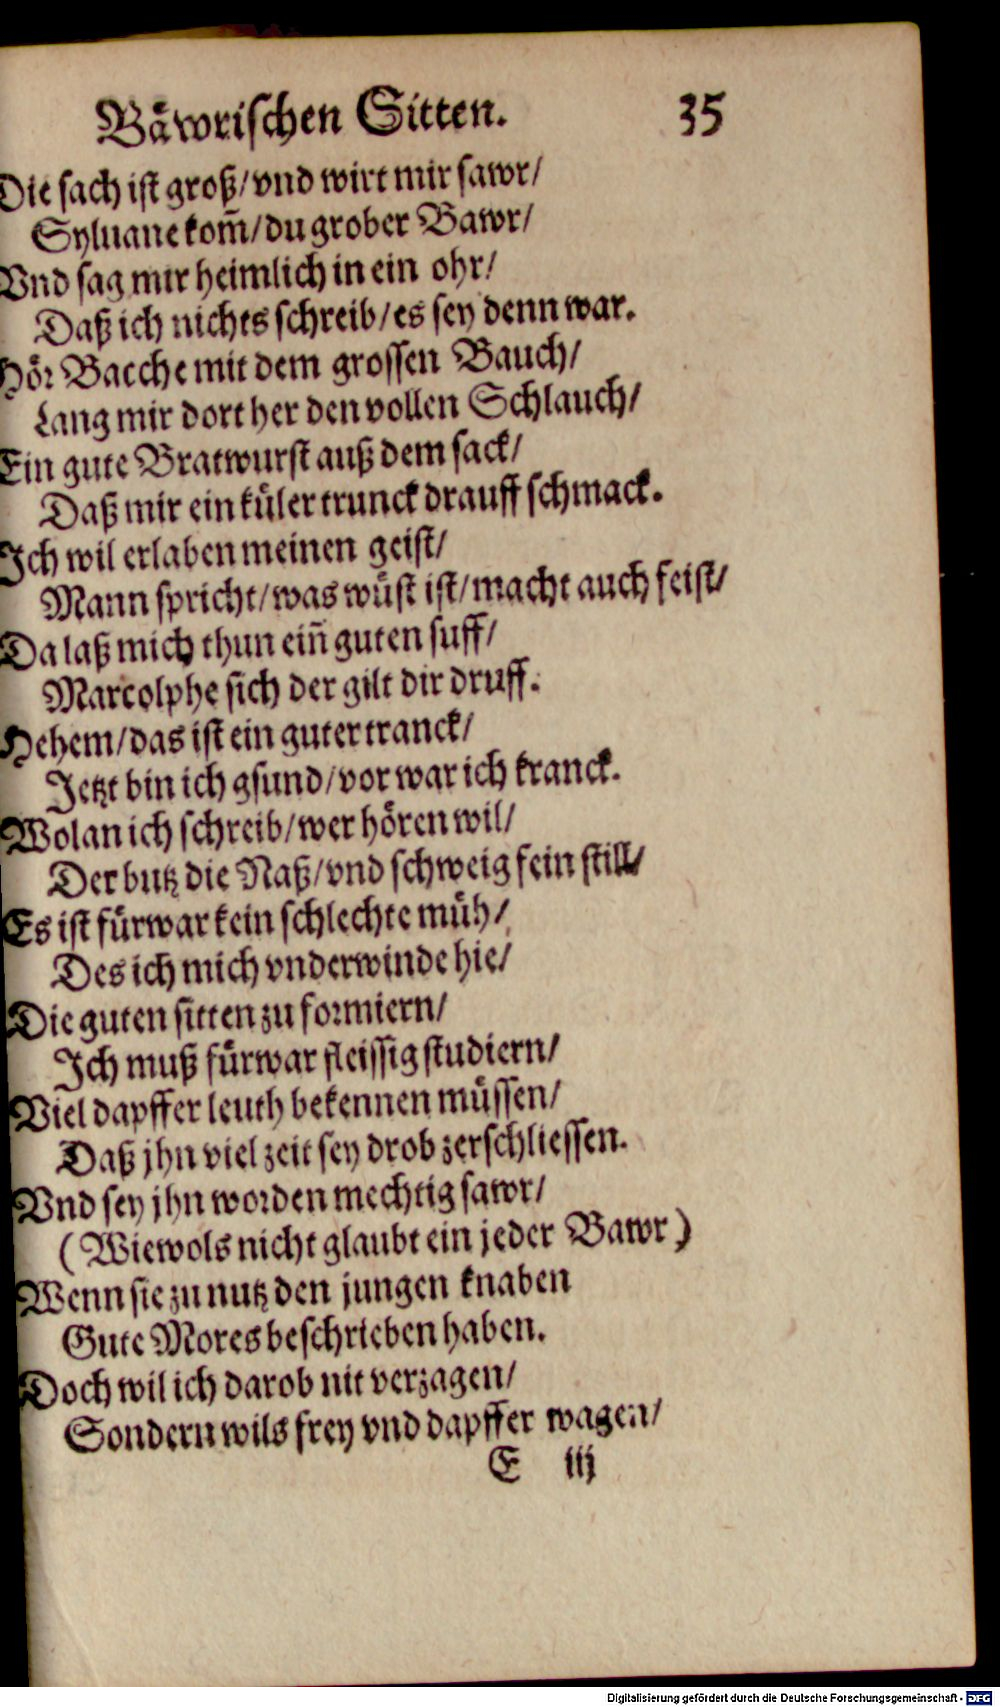 Bäwrischen Sitten. 35
Die sach ist groß/ vnd wirt mir sawr/
Syluane kom̃/ du grober Bawr/
Vnd sag mir heimlich in ein ohr/
Daß ich nichts schreib/ es sey denn war.
Hör Bacche mit dem grossen Bauch/
Lang mir dort her den vollen Schlauch/
Ein gute Bratwurst auß dem sack/
Daß mir ein küler trunck drauff schmack.
Ich wil erlaben meinen geist/
Mann spricht/ was wüst ist/ macht auch feist/
Da laß mich thun ein̄ guten suff/
Marcolphe sich der gilt dir druff.
Hehem/ das ist ein guter tranck/
Jetzt bin ich gsund/ vor war ich kranck.
Wolan ich schreib/ wer hören wil/
Der butz die Naß/ vnd schweig fein still/
Es ist fürwar kein schlechte müh/
Des ich mich vnderwinde hie/
Die guten sitten zu formiern/
Ich muß fürwar fleissig studiern/
Viel dapffer leuth bekennen müssen/
Daß jhn viel zeit sey drob zerschliessen.
Vnd sey jhn worden mechtig sawr/
(Wiewols nicht glaubt ein jeder Bawr)
Wenn sie zu nutz den jungen knaben
Gute Mores beschrieben haben.
Doch wil ich darob nit verzagen/
Sondern wils frey vnd dapffer wagen/
E iij
Digitalisierung gefördert durch die Deutsche Forschungsgemeinschaft - DFG